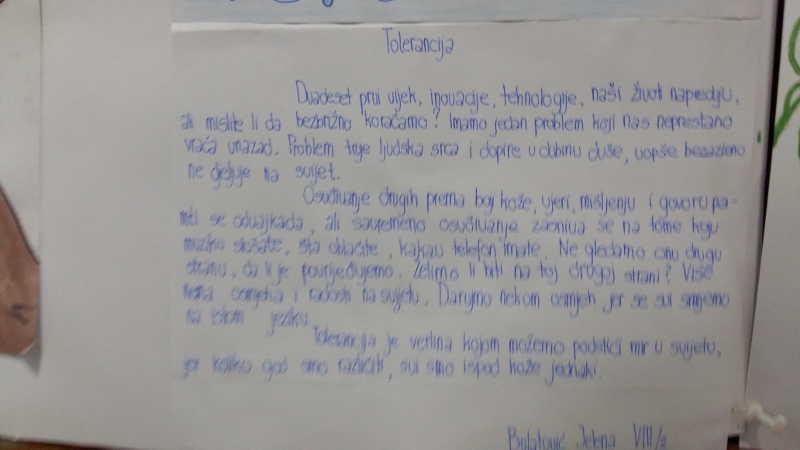 Tolerancija
Dvadeset prvi vijek, inovacije, tehnologije, naši životi napreduju,
ali mislite li da bezbrižno koračamo? Imamo jedan problem koji nas neprestano
vraća unazad. Problem truje ljudska srca i dopire u dubinu duše, uopšte bezazleno
ne djeluje na svijet.
Osuđivanje drugih prema boji kože, vjeri, mišljenju i govoru pa-
mti se oduvajkada, ali savremeno osuđivanje zasniva se na tome koju
muziku slušate, šta oblačite, kakav telefon imate. Ne gledamo onu drugu
stranu, da li je povrijeđujemo. Želimo li biti na toj drugoj strani? Više
nema osmjeha i radosti na svijetu. Darujmo nekom osmjeh jer se svi smijemo
na istom jeziku.
Tolerancija je vrlina kojom možemo podstići mir u svijetu,
jer koliko god smo različiti, svi smo ispod kože jednaki.
Bulatović Jelena VIII/2